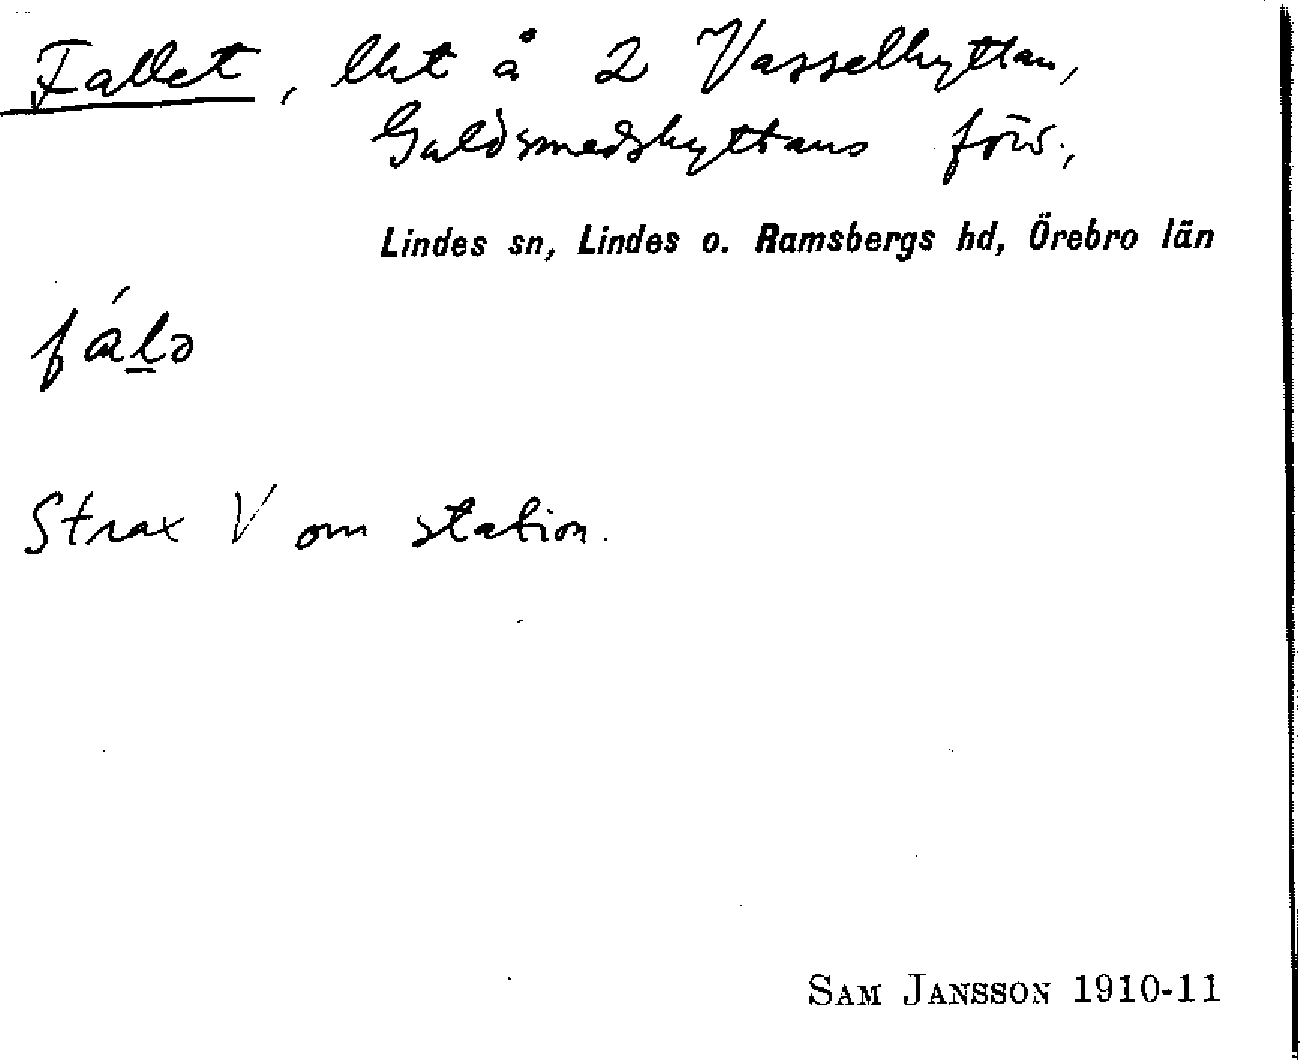 Fallet, lht å 2 Vasselhyttan,
Guldsmedshyttans förs.,
Lindes sn, Lindes o. Ramsbergs hd, Örebro län
fálə
Strax V om station.
SAM JANSSON 1910-11